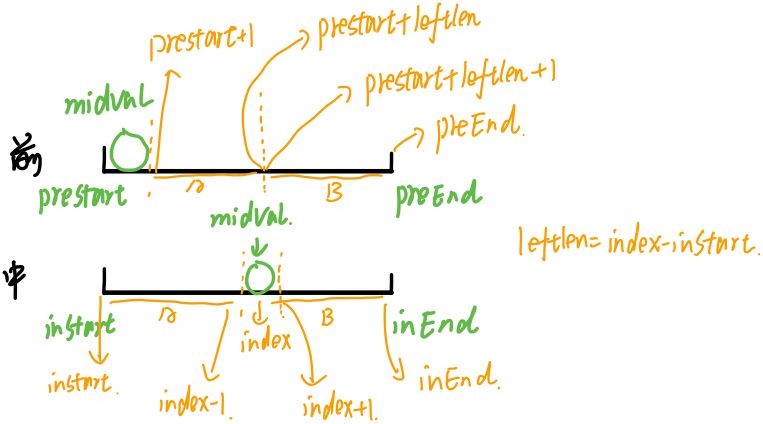 prestart+1
prestart+leftlen
prestart+leftlen+1
midval
preEnd.
前
prestart
B
preEnd
midval.
leftlen=index-instart.
中
B
instart
index
inEnd
instart.
index-1.
index+1.
inEnd.